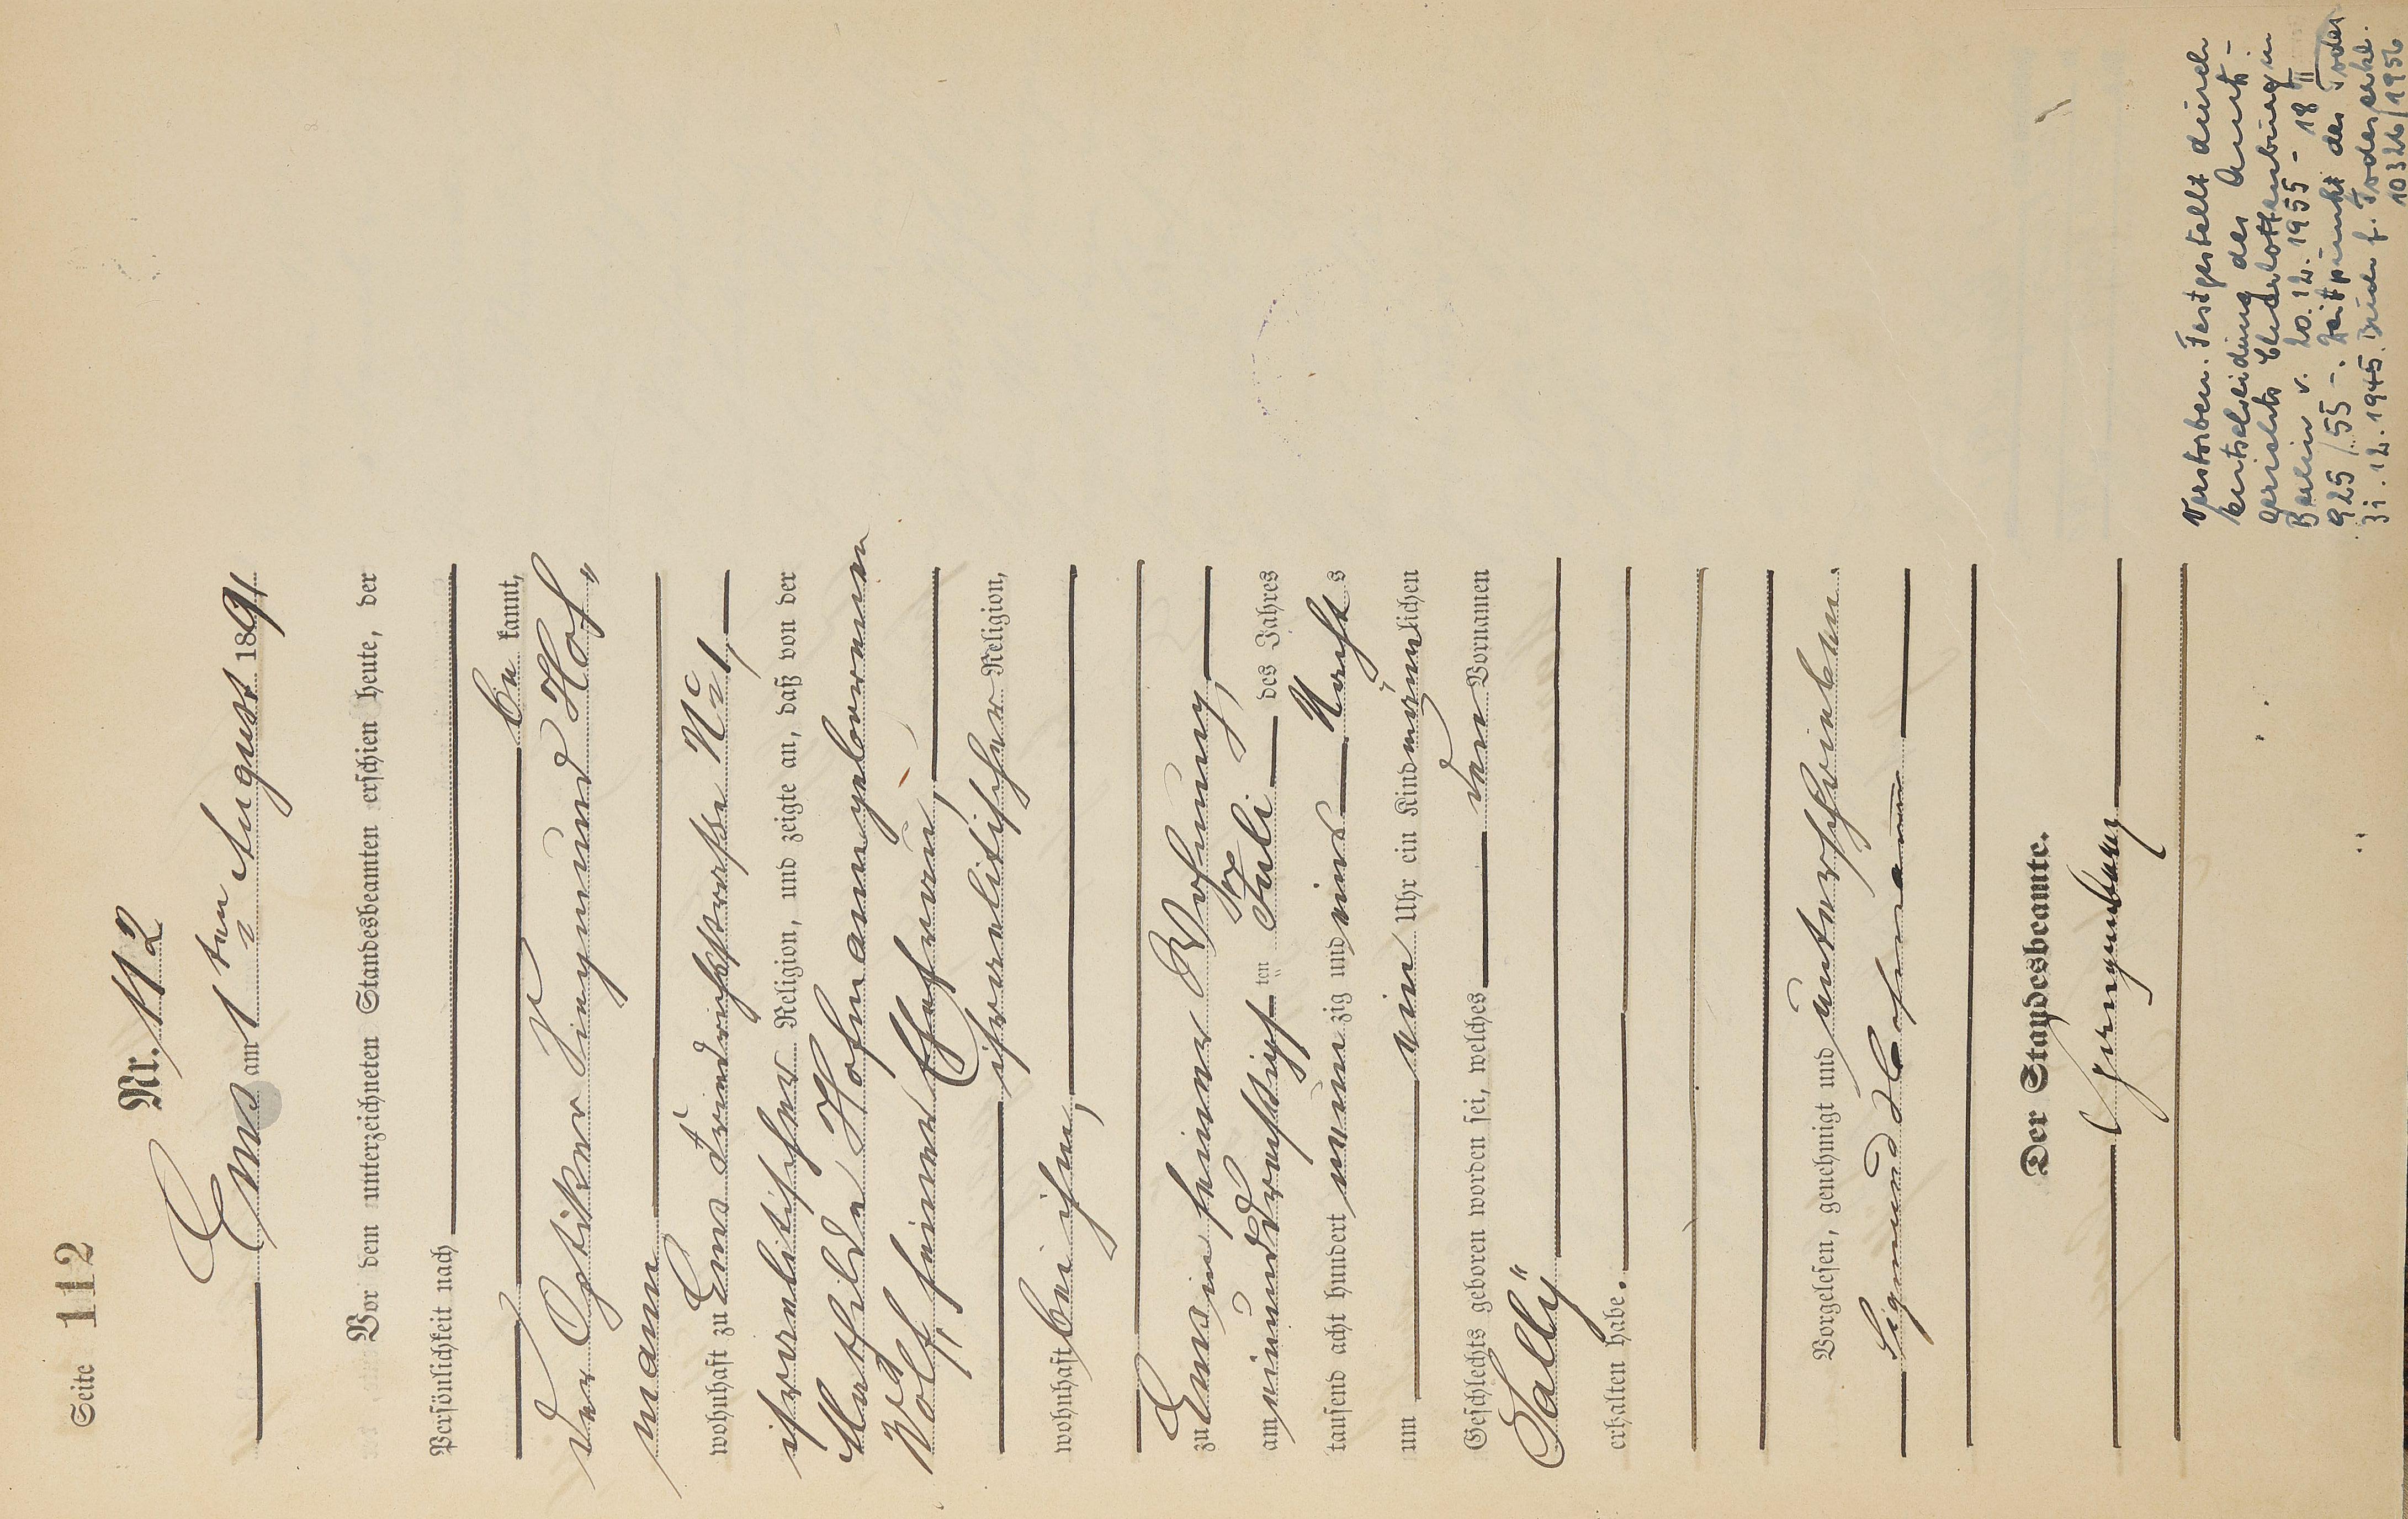 Seite 112
Nr. 112
Ems am 1ten August 1891
Vor dem unterzeichneten Standesbeamten erschien heute, der
Persönlichkeit nach
be kannt,
der Optiker Sigmund Hof„
mann
wohnhaft zu Ems Friedrichsstraße No 1,
israelitischer Religion, und zeigte an, daß von der
Mathilde Hofmann geborenen
Wolf, seiner Ehefrau,
israelitischer Religion,
wohnhaft bei ihm,
zu Ems in seiner Wohnung,
am einunddreißigsten Juli des Jahres
tausend acht hundert neunzig und eins Nachts
um ein Uhr ein Kind männlichen
Geschlechts geboren worden sei, welches den Vornamen
Sally"
erhalten habe.
Vorgelesen, genehmigt und unterschrieben.
Sigmund Hofmann
Der Standesbeamte.
Verstorben. Festgestellt durch
Entscheidung des Amts-
gerichts Charlottenburg in
Berlin v. 20.12.1955 - 18 II
925/55 -. Zeitpunkt des Todes
31.12.1945. Buch f. Todeserkl.
10326/1956